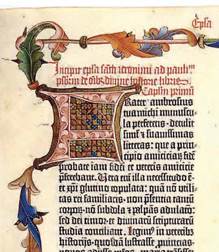 Epla
Incipit epła sācti ieronimi ad paulinū
presbiterū de oībꝫ diuine historie libris.
Capłm primū
Frater ambrosius
tua michi munuscu-
la perferens. detulit
simul et suauissimas
litteras: que a princi-
pio amiciciaꝝ fidē
probate iam fidei et
Vera eī illa necessitudo ē.
et xp̄i glutino copulata: quā nō utili-
tas rei familiaris. nō presentia tantū
corpoꝝ. nō subdola et palpās adulatō:
sed dei timor. et diuinaꝝ scripturarū
studia conciliant. Legimꝰ in ueteribꝫ
historijs. quosdā lustrasse ꝓuincias.